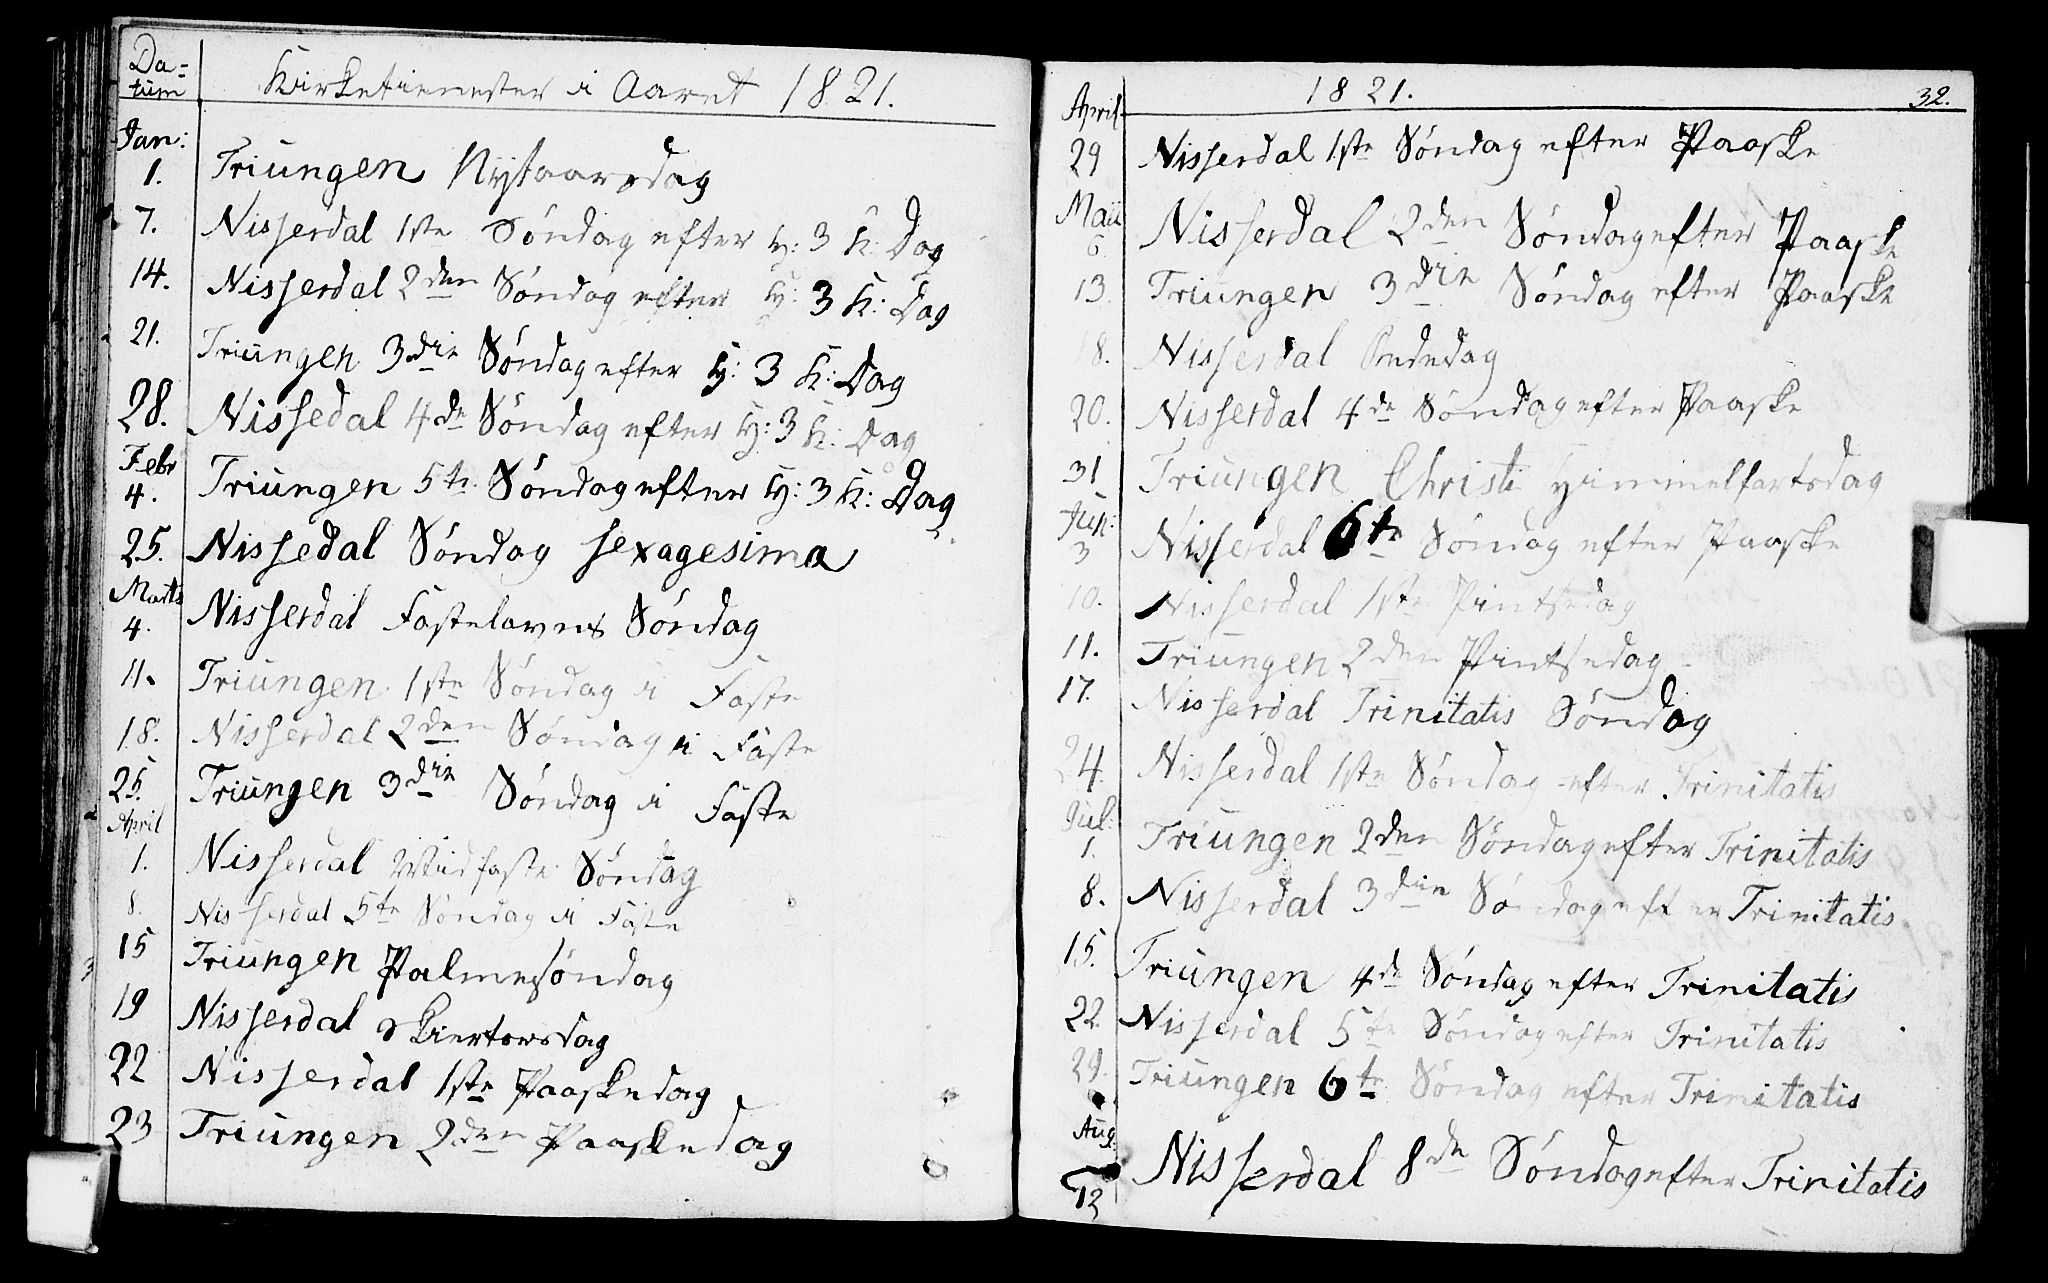 Da=
tum
Kirketienester i Aaret 1821.
Jan:
1. Triungen Nÿtaarsdag
7. Nisserdal 1ste Søndag efter H: 3 K: Dag
14. Nisserdal 2den Søndag efter H: 3 K: Dag
21. Triungen 3die Søndag efter H: 3 K: Dag
28. Nissedal 4de Søndag efter H: 3 K: Dag
Febr
4. Triungen 5te Søndag efter H: 3 K: Dag
25. Nissedal Søndag Sexagesima
Marts
4. Nisserdal Fastelavns Søndag
11. Triungen 1ste Søndag i Faste
18. Nisserdal 2den Søndag i Faste
25. Triungen 3die Søndag i Faste
April
1. Nisserdal Midfaste Søndag
8. Nisserdal 5te Søndag i Faste
15 Triungen Palmesøndag
19 Nisserdal Skiertorsdag
22 Nisserdal 1ste Paaskedag
23 Triungen 2den Paaskedag
1821.
32.
April
29 Nisserdal 1ste Søndag efter Paaske
Maii
6 Nisserdal 2den Søndag efter Paaske
13 Triungen 3die Søndag efter Paaske
18. Nisserdal Bededag
20. Nisserdal 4de Søndag efter Paaske
31 Triungen Christi Himmelfartsdag
Jun:
3 Nisserdal 6te Søndag efter Paaske
10. Nisserdal 1ste Pintsedag
11. Triungen 2den Pintsedag
17. Nisserdal Trinitatis Søndag
24. Nisserdal 1ste Søndag efter Trinitatis
Jul:
1. Triungen 2den Søndag efter Trinitatis
8. Nisserdal 3die Søndag efter Trinitatis
15. Triungen 4de Søndag efter Trinitatis
22. Nisserdal 5te Søndag efter Trinitatis
29. Triungen 6te Søndag efter Trinitatis
Aug:
12 Nisserdal 8de Søndag efter Trinitatis